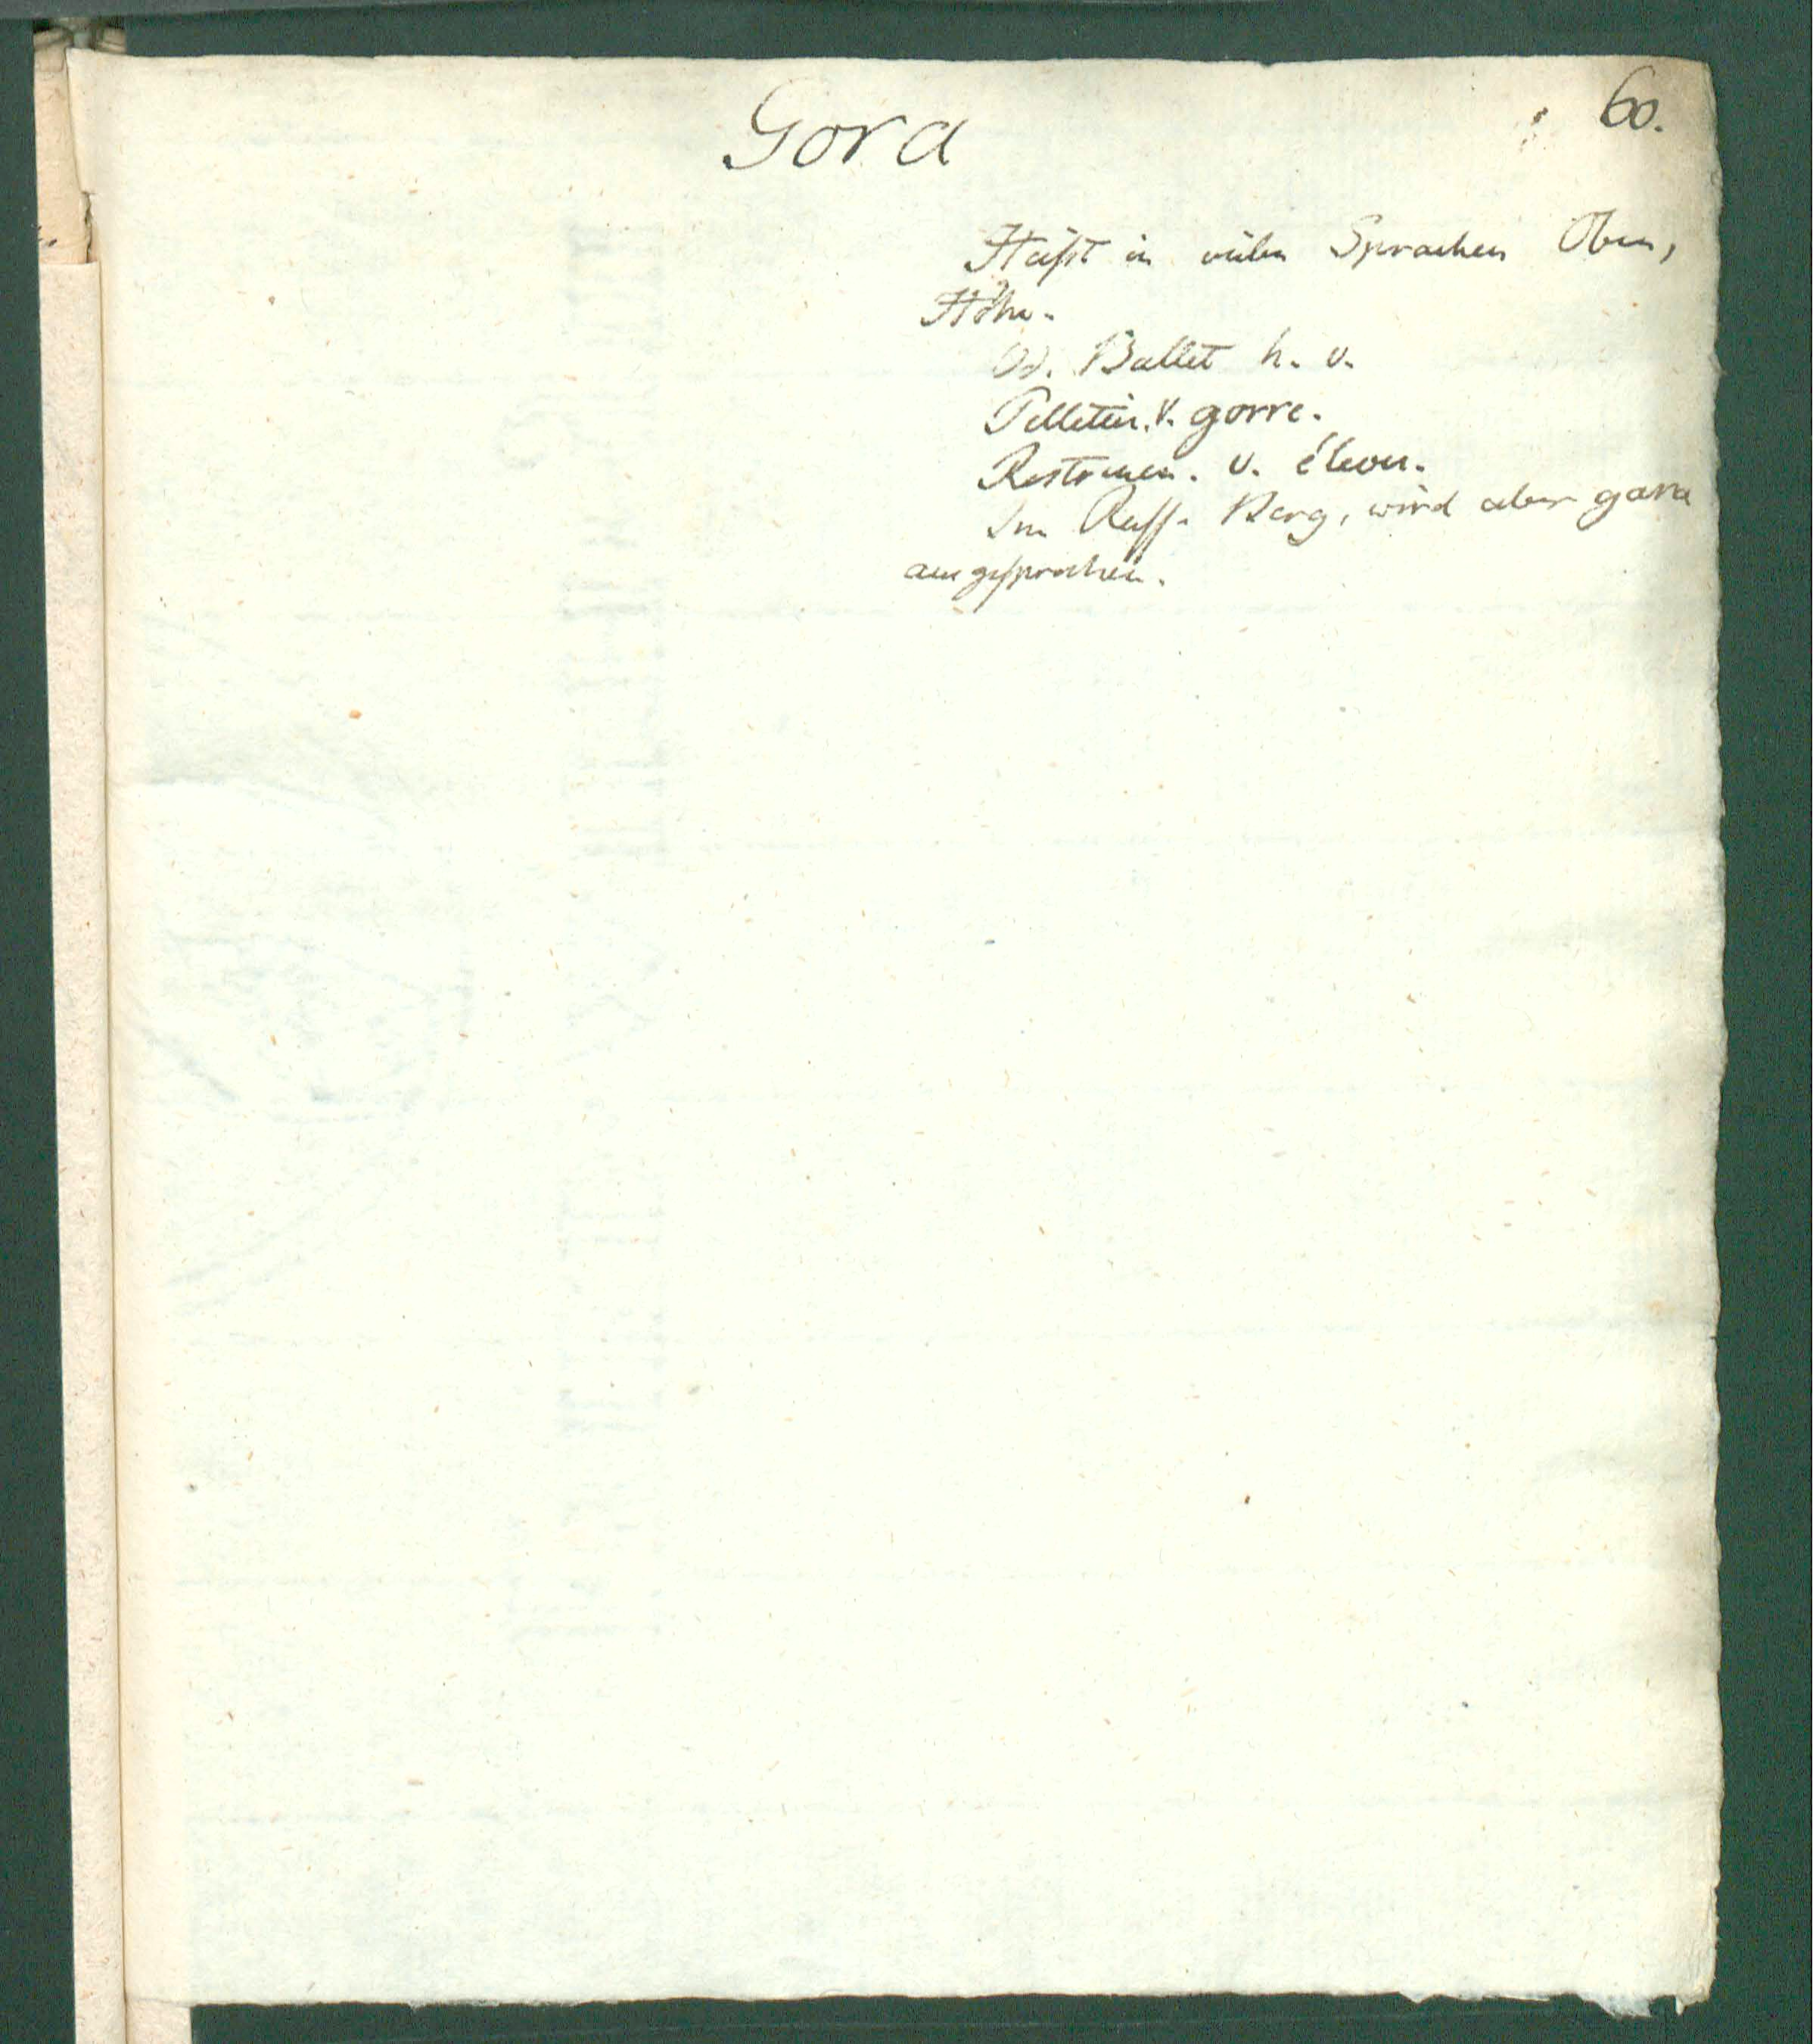 60.
Gora
Heißt in vielen Sprachen Oben,
Höhe.
Bullet h. v.
Pelletier. v. gorre.
Rostrenen. v. élevé.
Im Russ. Berg, wird aber gara
ausgesprochen.